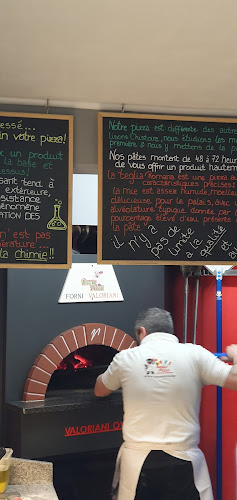 essé...
in votre pizza!
c un produit
la bafe et
dessus!
ant tend à
extérieure,
sistance
phénomène
ATION DES
n'est pas
érature...
la chimie!!
Notre pizza est différente des autres
l'histoire, nous étudions les m
première & nous y mettons de la p
Nos pâtes montent de 48 à 72 heur
de vous offrir un produit hautem
la teglia Romana est une pizza au
caractéristiques précises
la mie est assez humide, moelleu
délicieuse pour le palais, avec un
alvéolature typique donnée par
pourcentage élevé d'eau présente
la pâte!
il n'y a pas de limite à la qualité
FORNI VALORIANI
VALORIANI